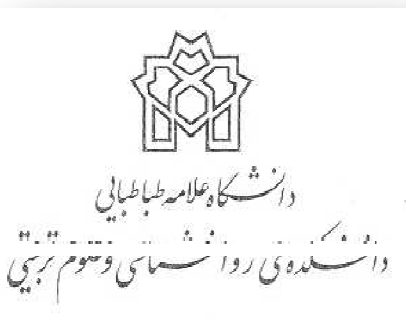 دانشگاه علامه طباطبایی
دانشکده‌ی روانشناسی و علوم تربیتی